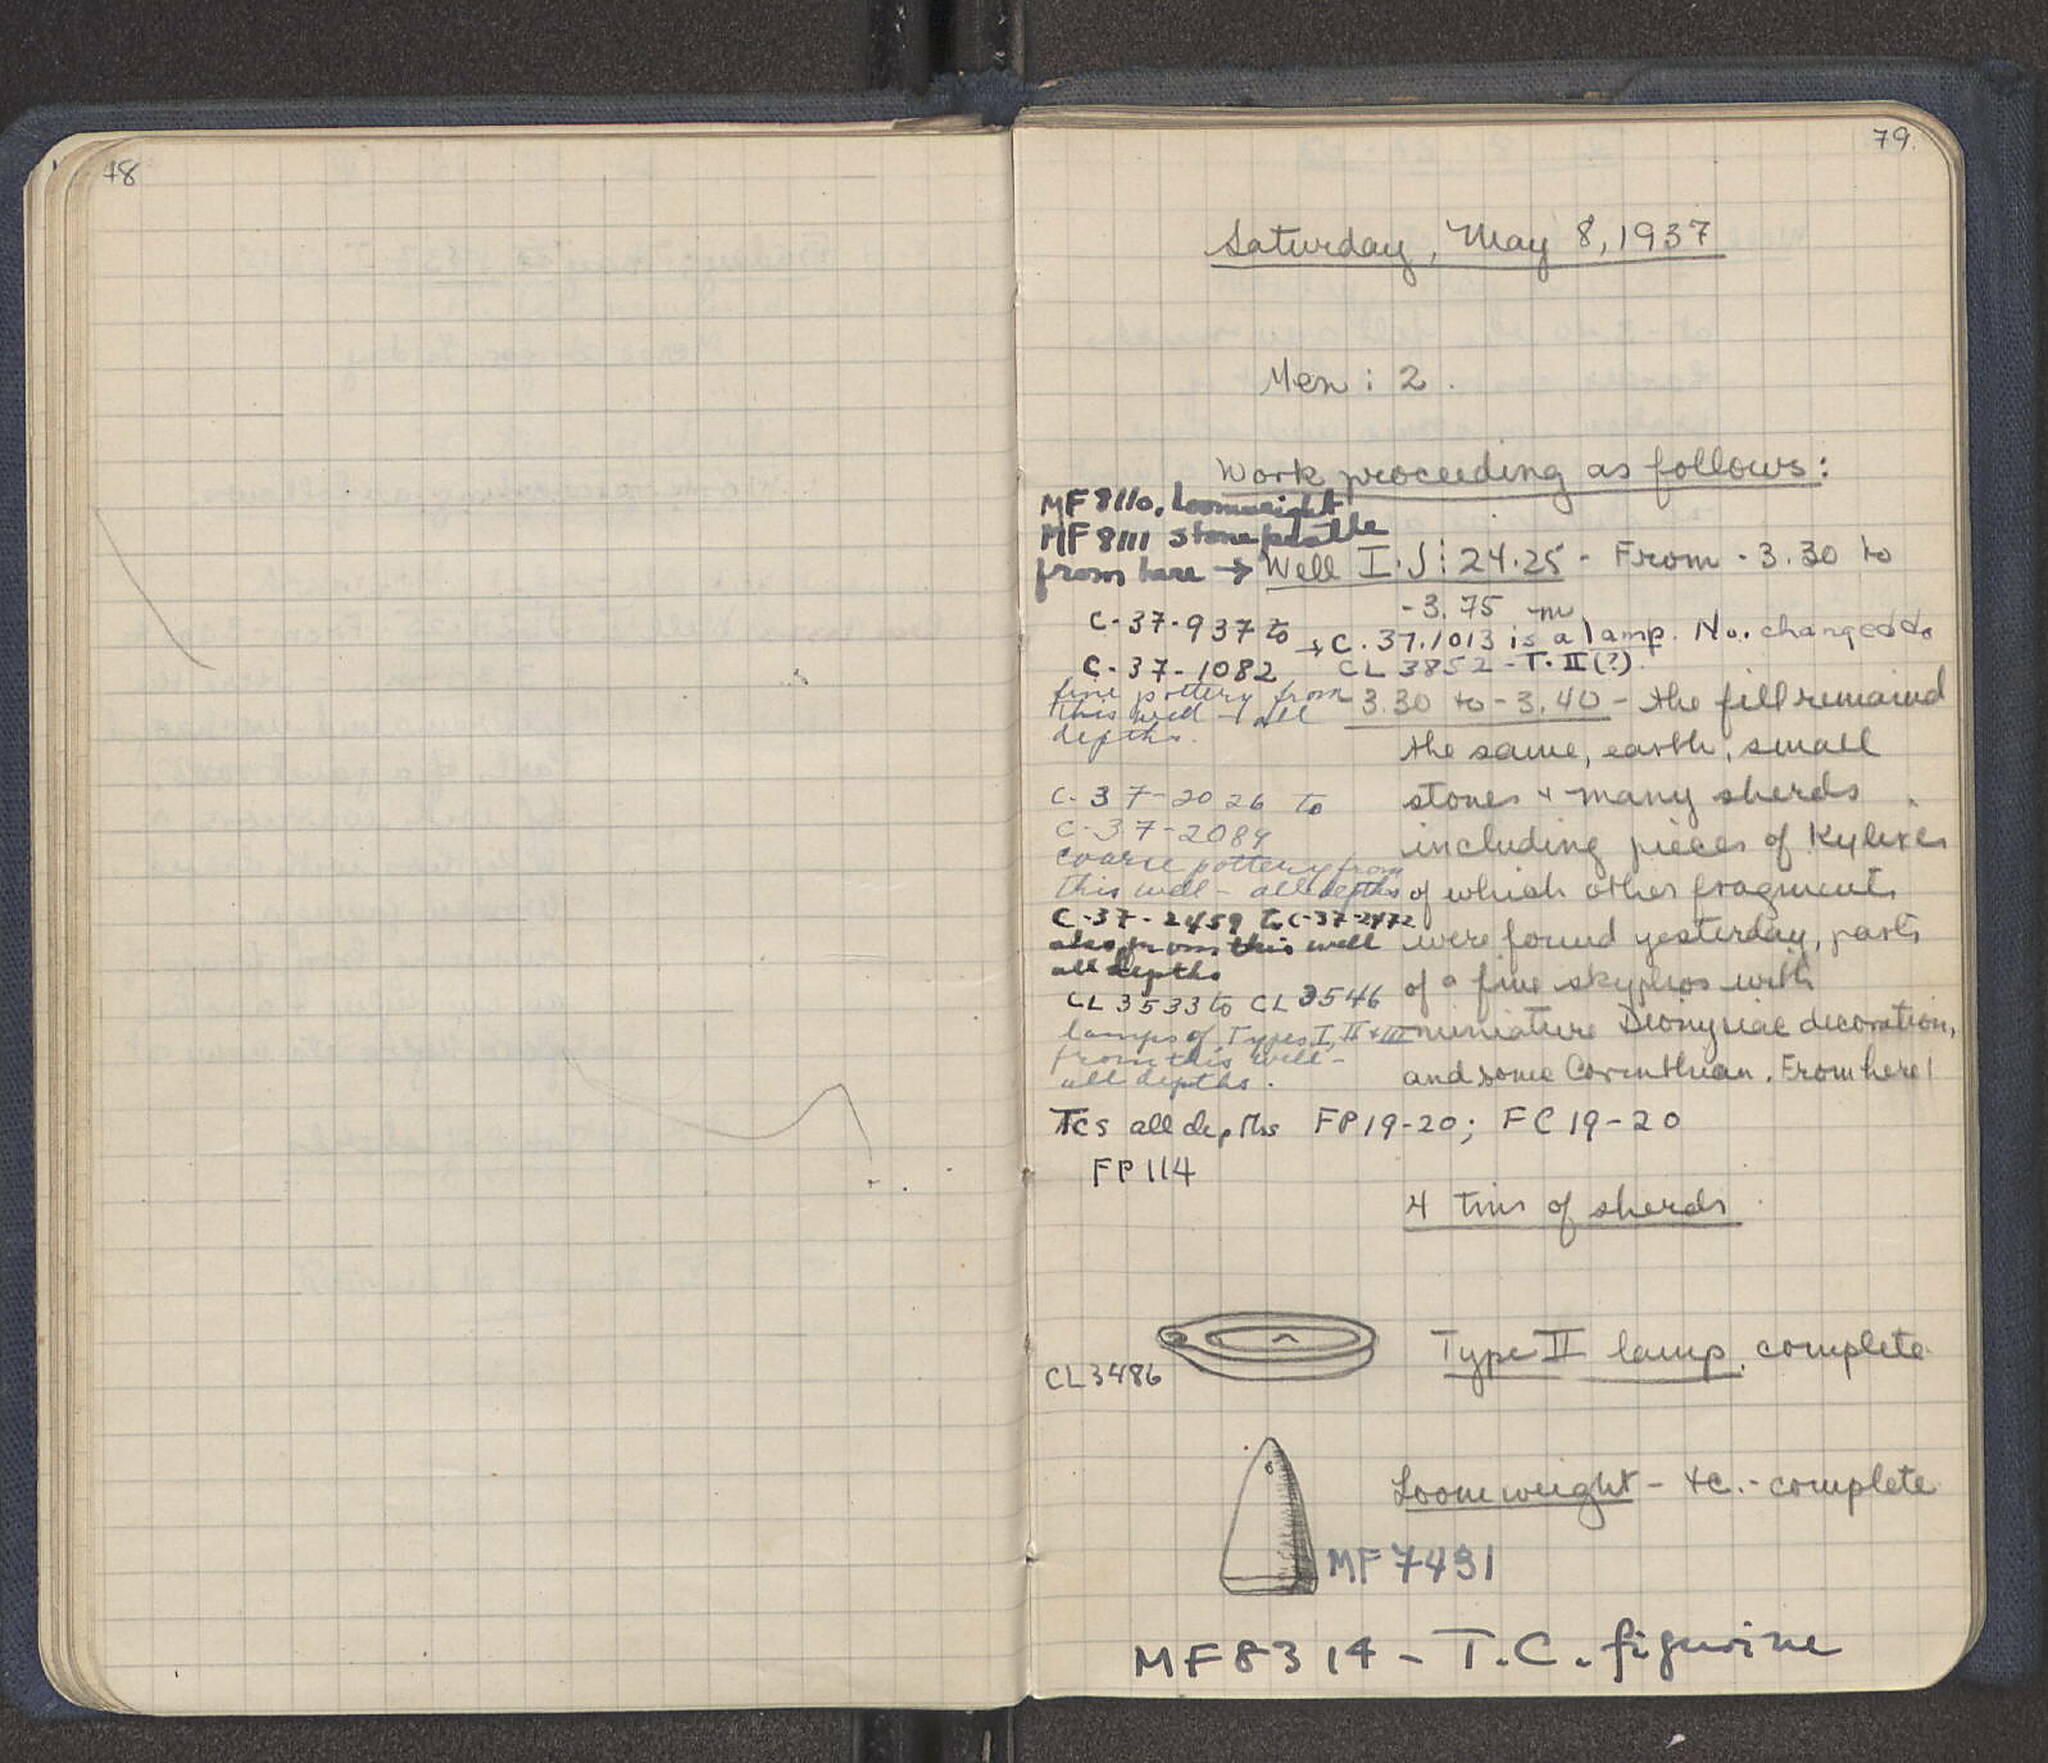 78
79.
Saturday, May 8, 1937
Men : 2 .
Work proceeding as follows:
MF 8110, Loomweight
MF 8111 stone pestle
from here → Well I. J : 24.25 - From - 3.30 to
-3.75 m.
C-37-937 to
C-37-1082
→ C.37.1013 is a lamp. No. changed to
CL 3852 - T. II (?).
fine pottery from
this well - all
depths.
C-37-2026 to
C-37-2089
coarse pottery from
this well - all depths
C-37-2459 to C-37-2472
also from this well
all depths
CL 3533 to CL 3546
lamps of Types I, II + III
from this well -
all depths.
-3.30 to -3.40 - the fill remained
the same, earth, small
stones + many sherds
including pieces of Kylixes
of which other fragments
were found yesterday, parts
of a fine skyphos with
miniature Dionysiac decoration,
and some Corinthian. From here!
TCs all depths FP 19-20; FC 19-20
FP 114
4 tins of sherds
CL 3486
Type II lamp, complete
Loomweight - tc. - complete
MF 7491
MF 8314 - T.C. figurine